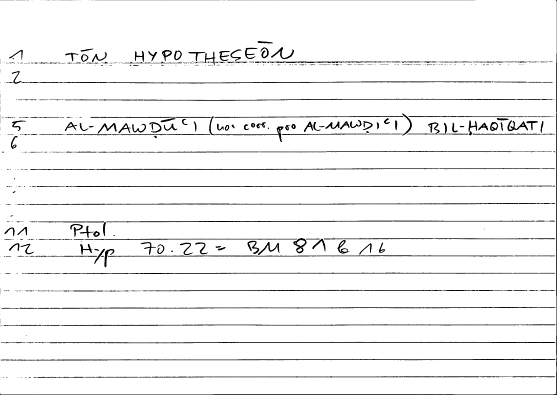 1 TŌN HYPOTHESEŌN
2
5 AL-MAWḌŪʿI (hoc corr. pro AL-MAWḌIʿI) BIL-ḤAQĪQATI
6
11 Ptol.
12 Hyp 70.22 = BM 81 b 16